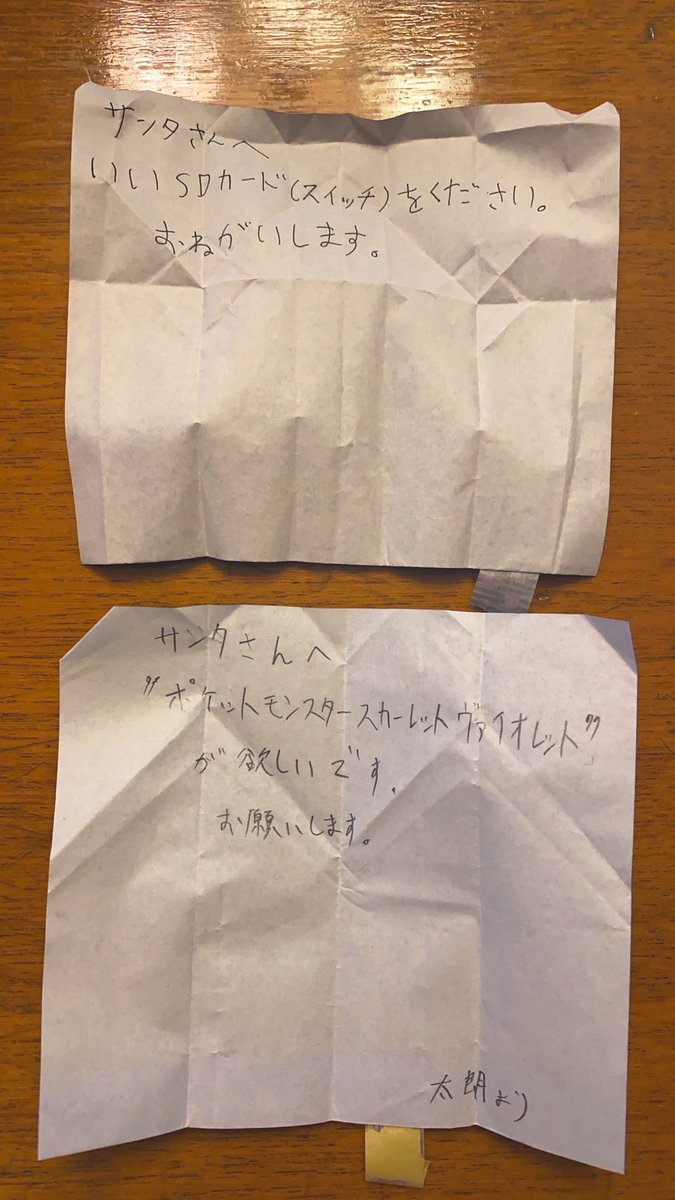 サンタさんへ
いいSDカード(スイッチ)をください。
おねがいします。
サンタさんへ
"ポケットモンスタースカーレットヴァイオレット"
が欲しいです.
お願いします。
太朗より